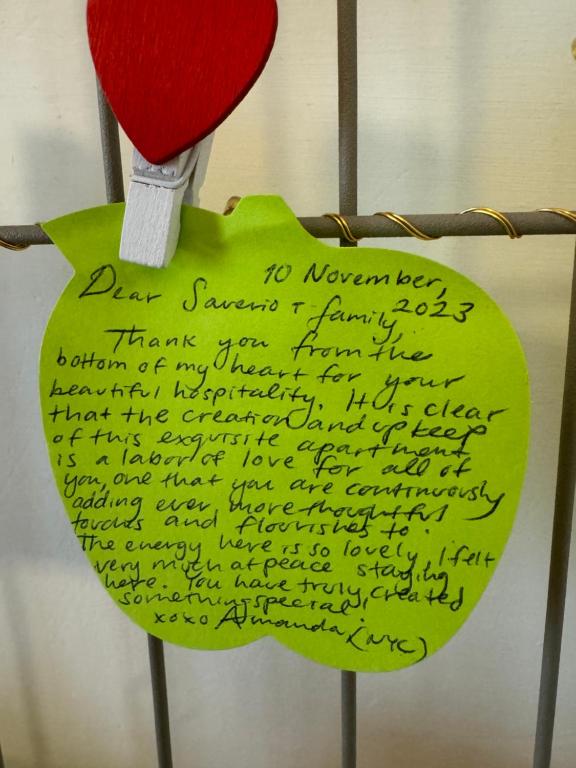 10 November,
2023
Dear Saverio + family,
Thank you from the
bottom of my heart for your
beautiful hospitality. It is clear
that the creation and upkeep
of this exquisite apartment
is a labor of love for all of
you, one that you are continuously
adding ever more thoughtful
touches and flourishes to.
The energy here is so lovely, I felt
very much at peace staying
here. You have truly created
something special!
xoxo Amanda (NYC)